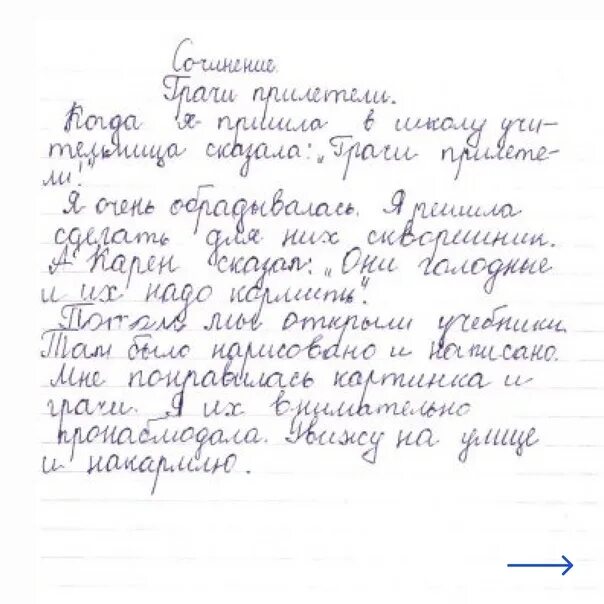 Сочинение.
Грачи прилетели.
Когда я пришла в школу учи-
тельница сказала: „Грачи прилете-
ли!"
Я очень обрадывалась. Я решила
сделать для них скворешник.
А Карен сказал: „Они голодные
и их надо кормить".
Потом мы открыли учебники.
Там было нарисовано и написано.
Мне понравилась картинка и
грачи. Я их внимательно
пронаблюдала. Увижу на улице
и накармлю.